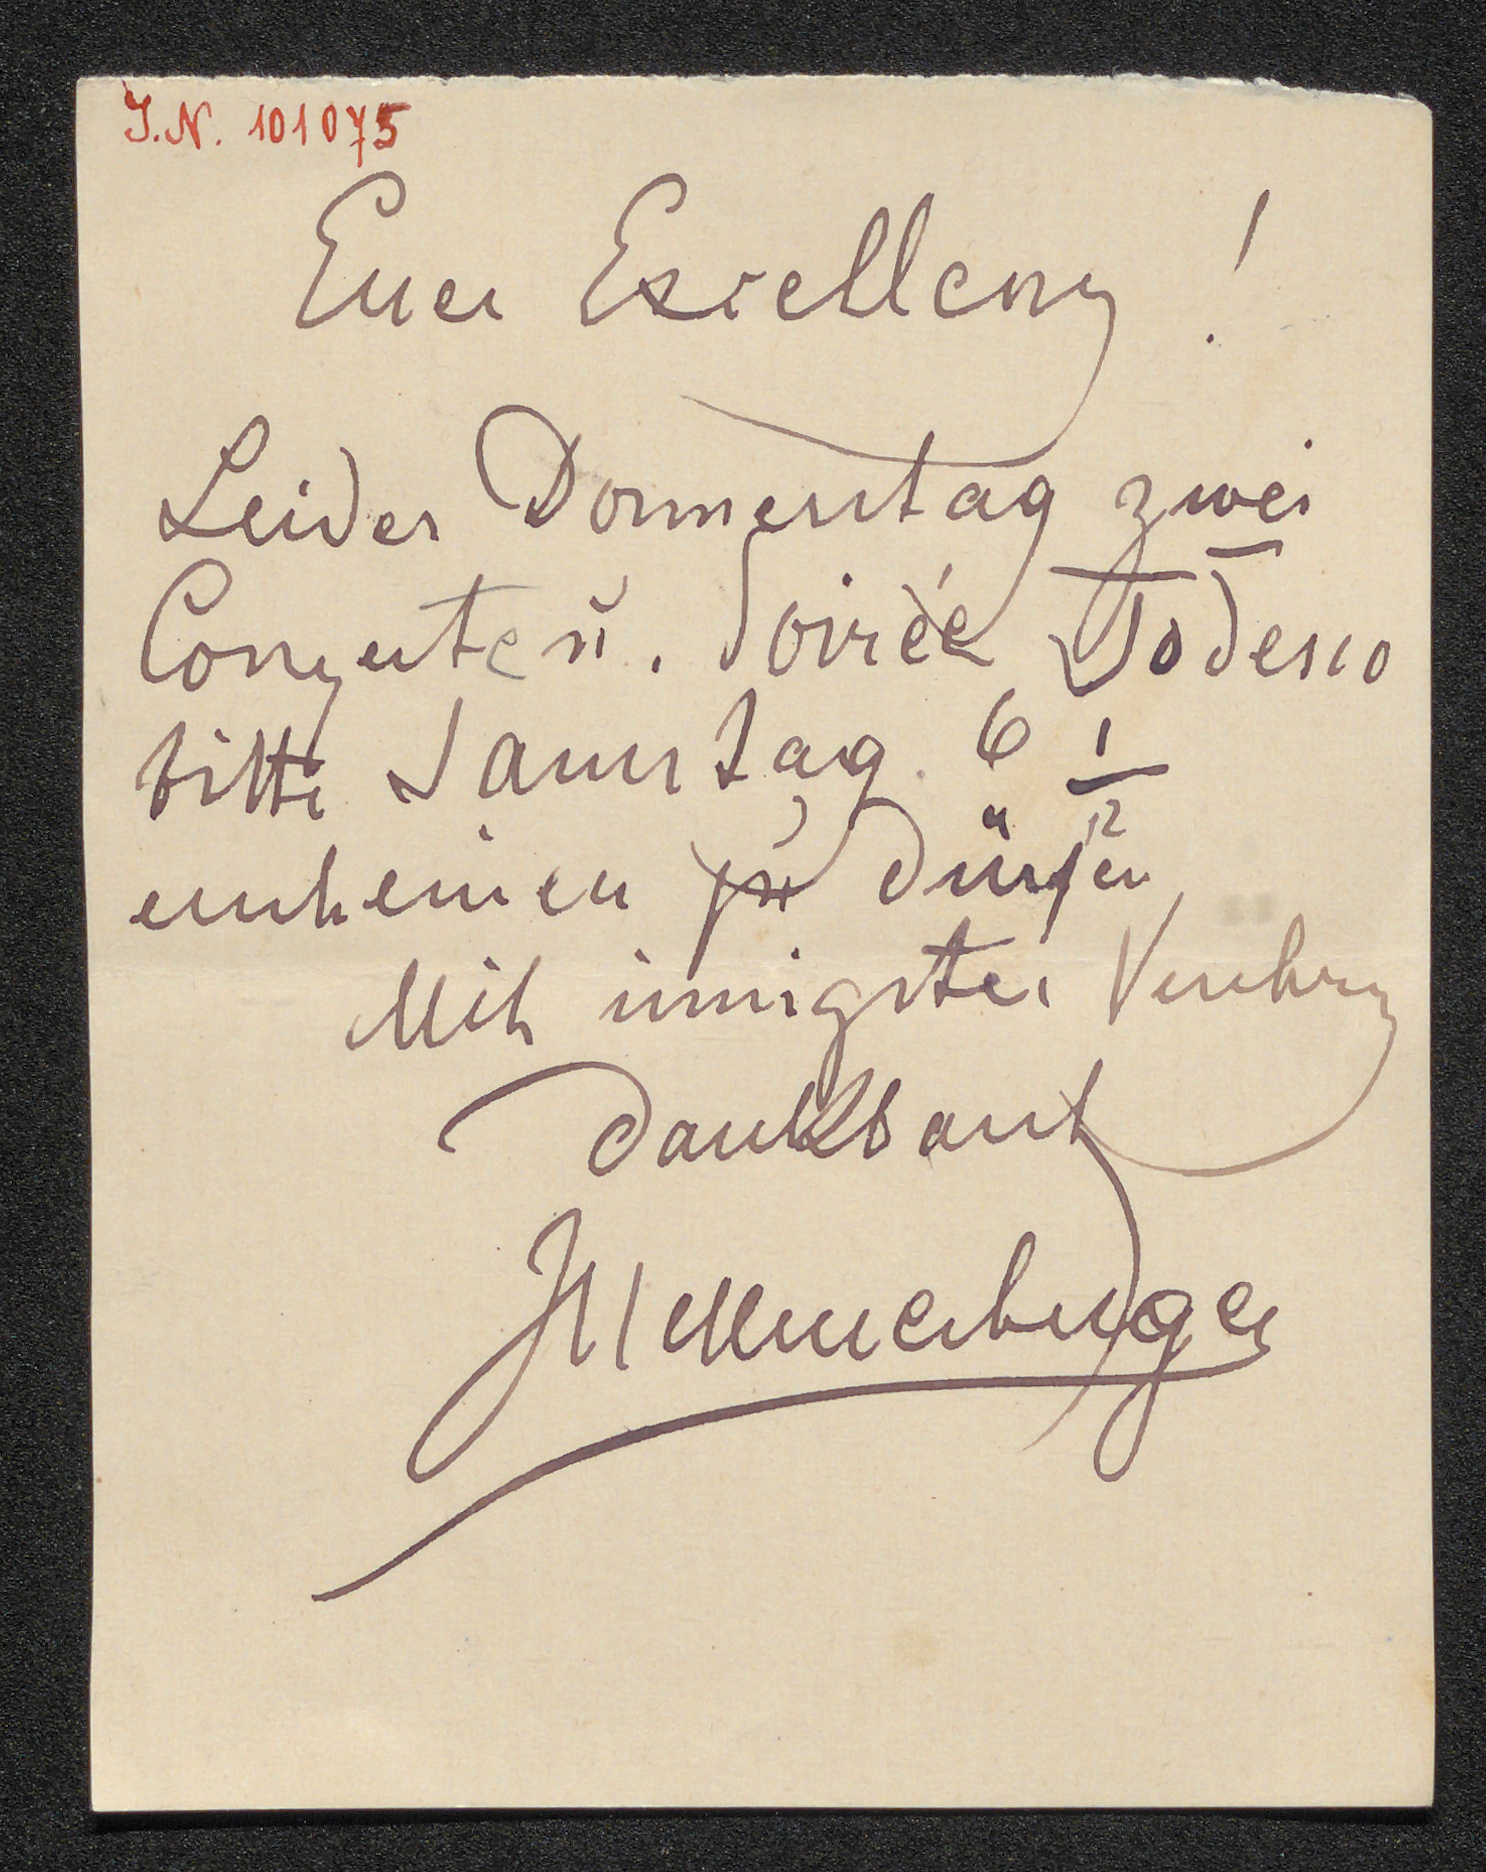 J.N. 101075
Euer Excellenz!
Leider Donnerstag zwei
Conzerte u. Soirée Todesco
bitte Samstag. 6 1/2
erscheinen zu dürfen
Mit innigster Verehrung
dankbarst
JHellmesberger